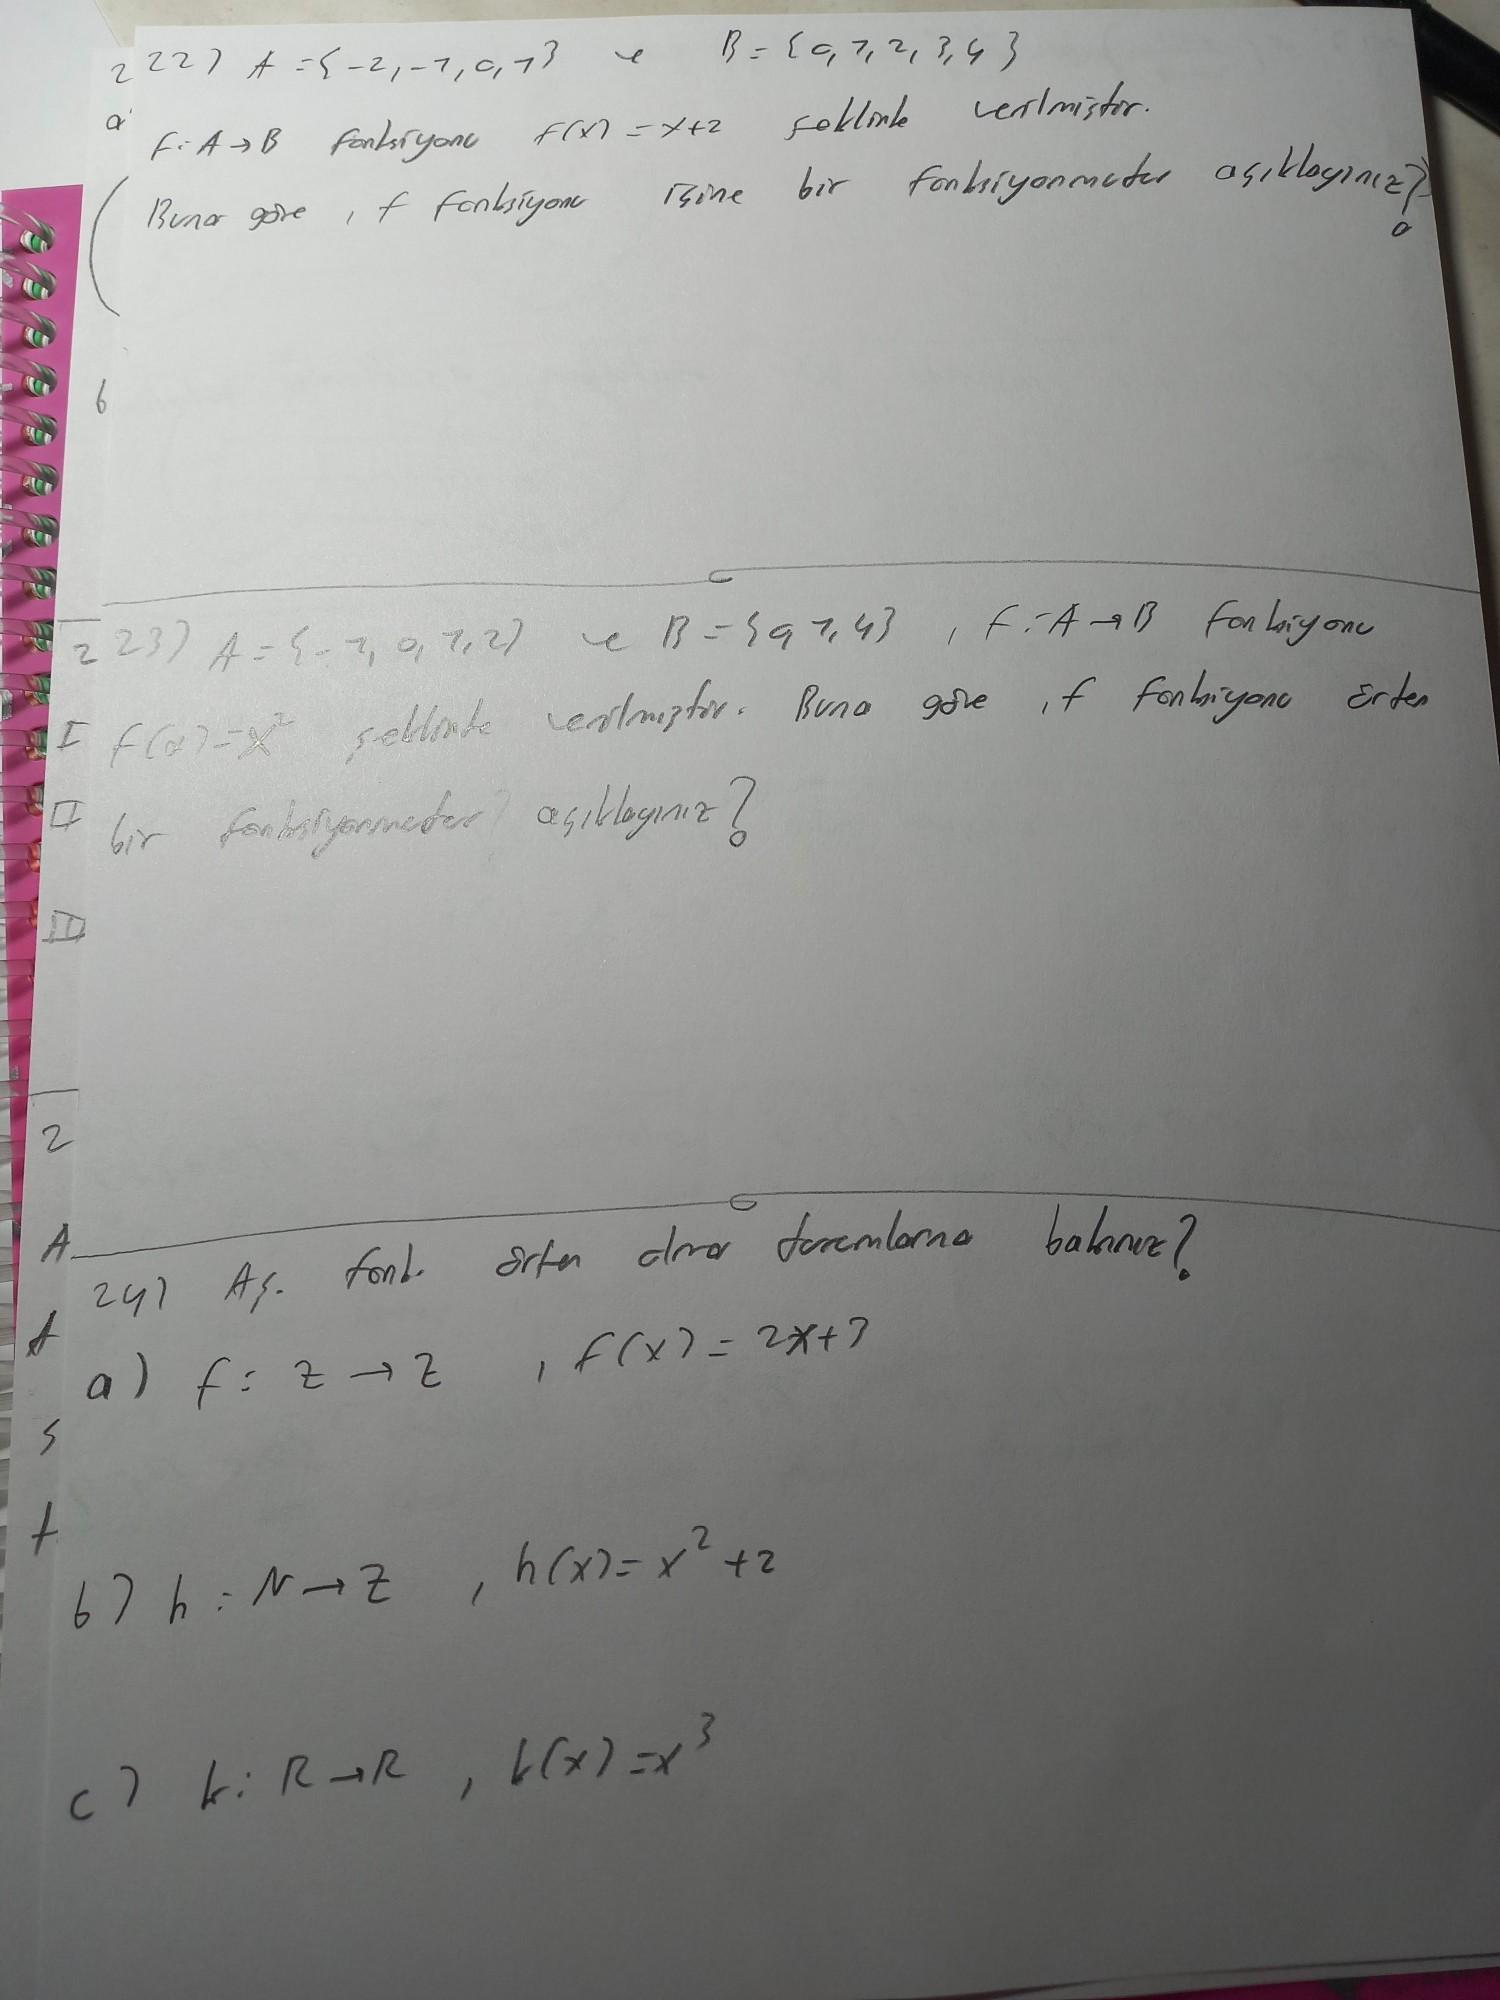 22) A = {-2, -1, 0, 1} ve B = {0, 1, 2, 3, 4}
f: A → B fonksiyonu f(x) = x+2 şeklinde verilmiştir.
Buna göre, f fonksiyonu içine bir fonksiyonmudur açıklayınız?
23) A = {-1, 0, 1, 2} ve B = {0, 1, 4}, f: A → B fonksiyonu
f(x) = x² şeklinde verilmiştir. Buna göre, f fonksiyonu örten
bir fonksiyonmudur? açıklayınız?
24) Aş. fonk. örten olma durumlarına bakınız?
a) f: Z → Z, f(x) = 2x+3
b) h: N → Z, h(x) = x² + 2
c) k: R → R, k(x) = x³
2
a
(
b
2
I
II
III
2
A
f
s
f